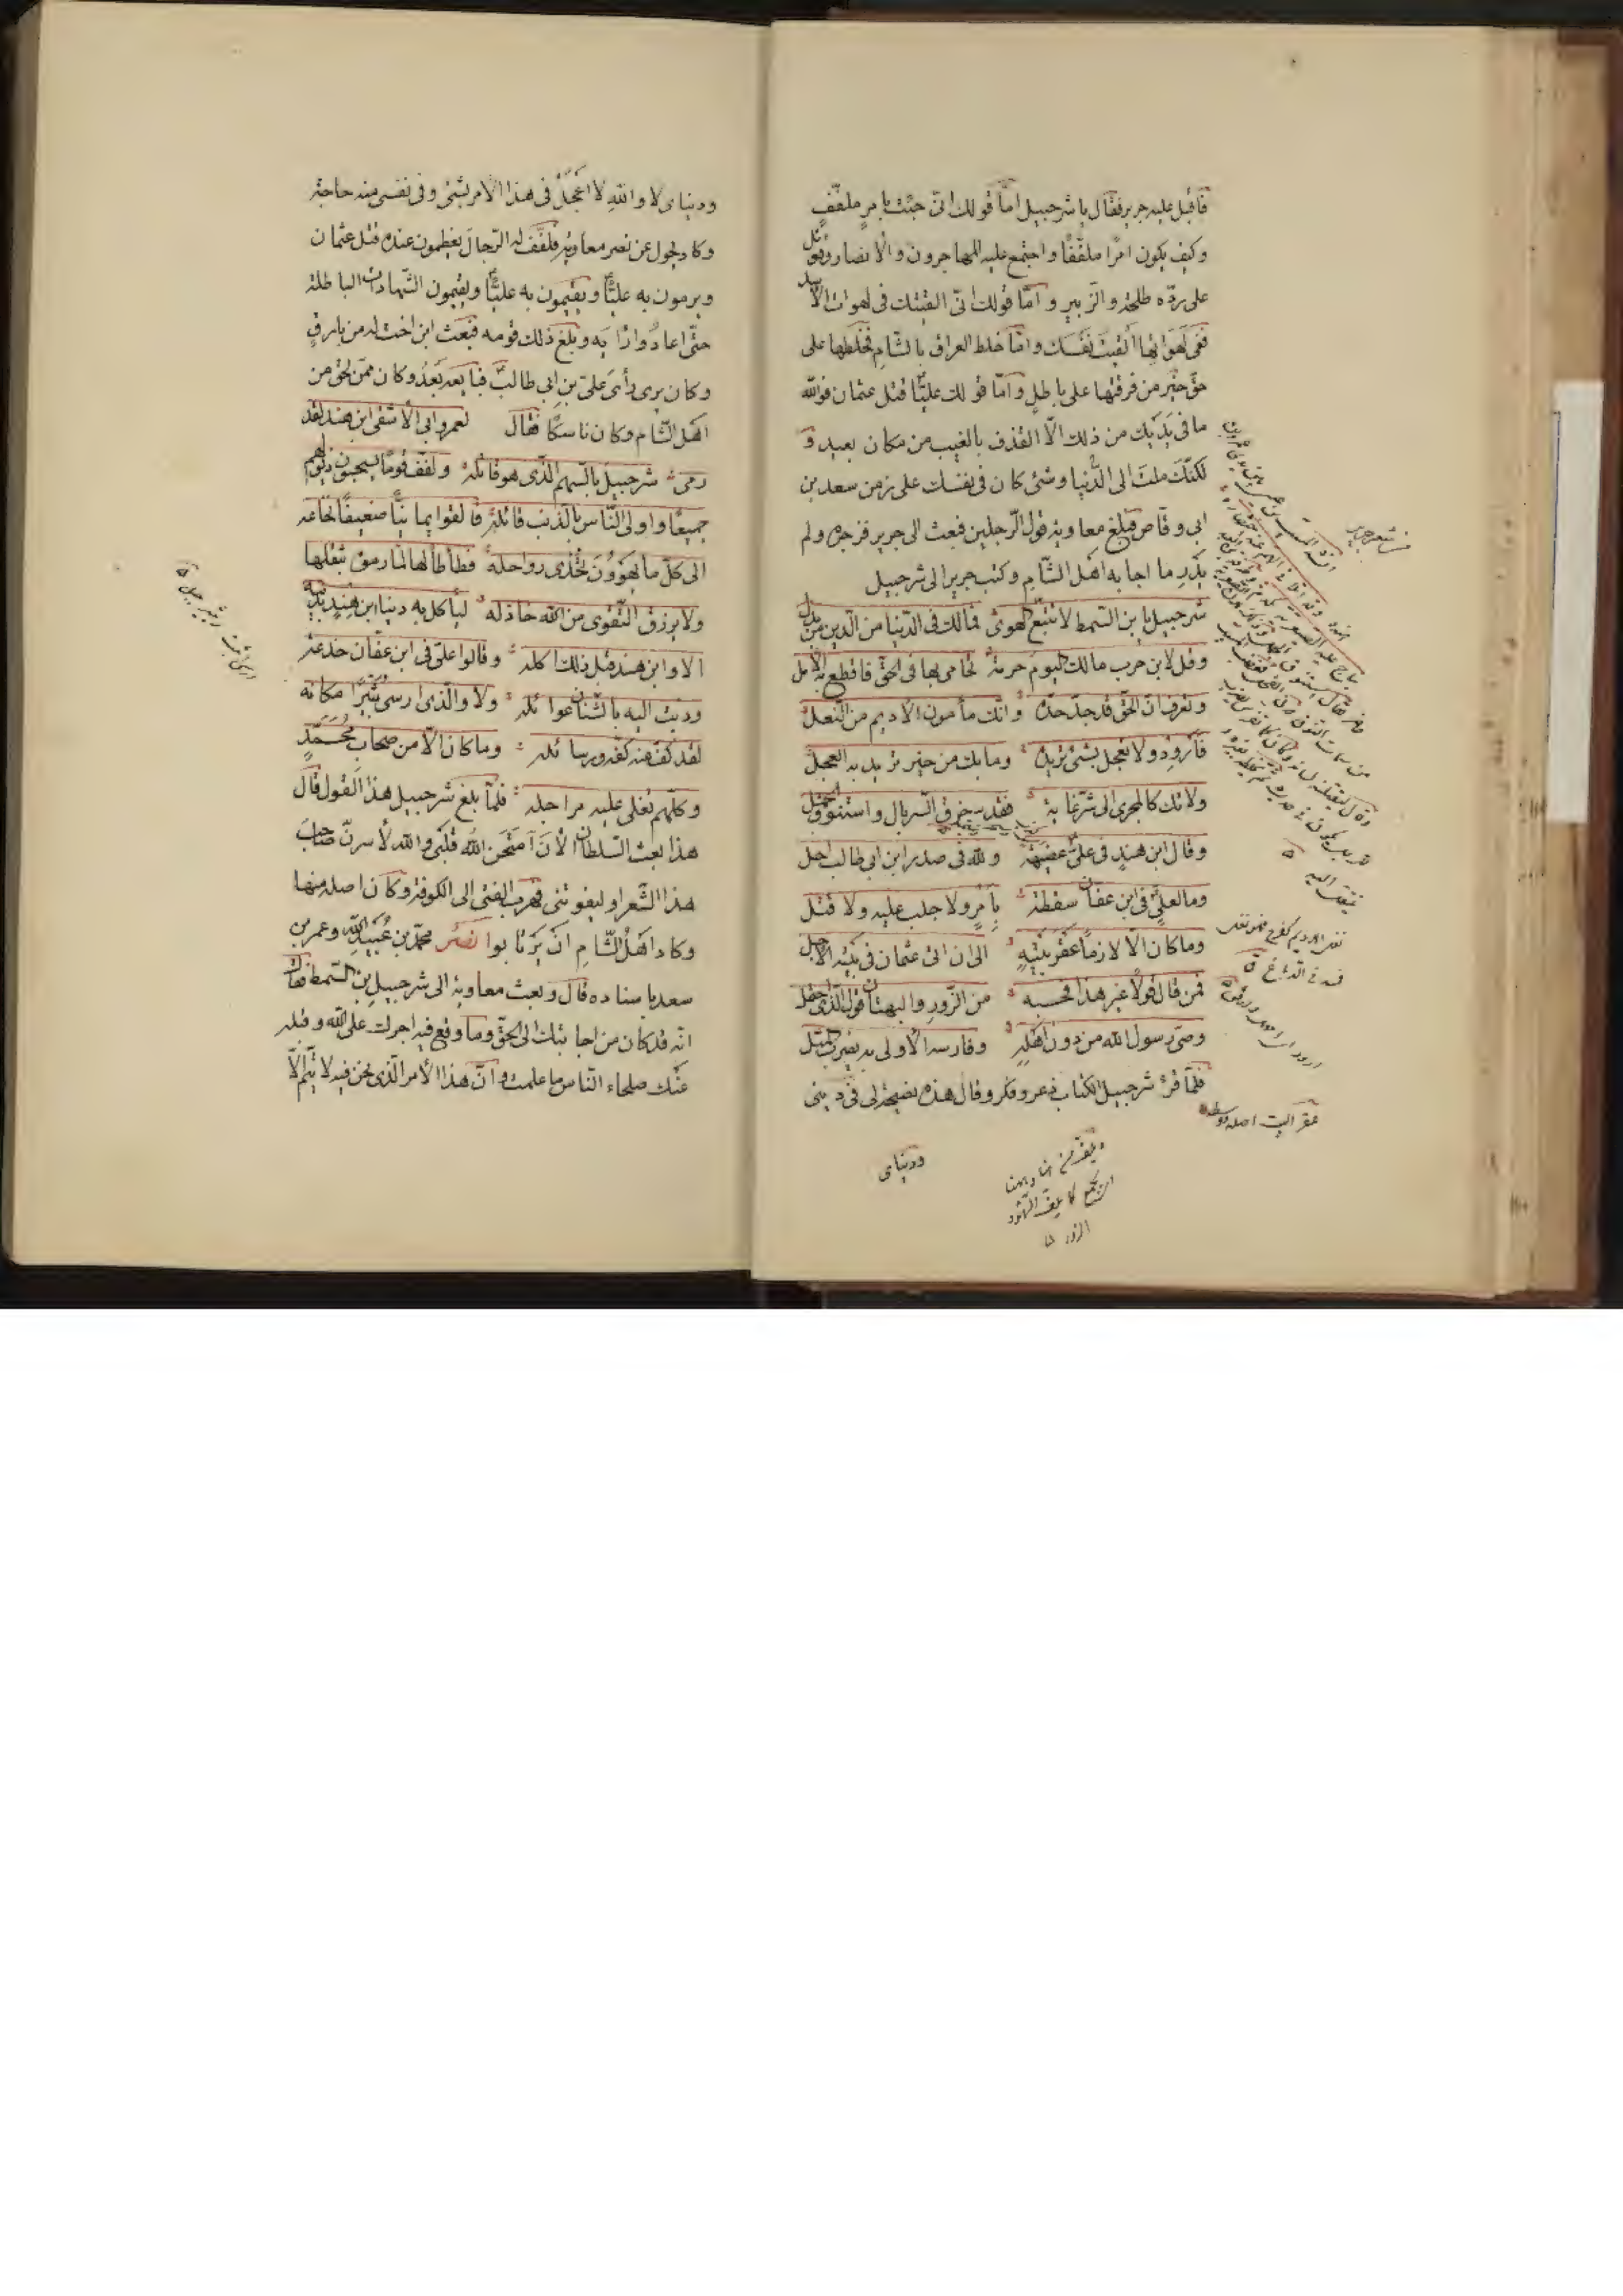 فأقبل عليه جرير فقال يا شرحبيل امّا قولك انّى جئت بامرٍ ملفّفٍ
وكيف يكون امرًا ملفّفًا واجتمع عليه المهاجرون والأنصار وقوتل
على ردّه طلحة والزبير وامّا قولك انّى القيتك فى لهوات الأسد
ففى لهواتها القيت نفسك وامّا خلط العراق بالشام فخلطها على
حقّ خير من فرقتها على باطلٍ وامّا قولك عليّا قتل عثمان فوالله
ما فى يديك من ذلك الّا القذف بالغيب من مكان بعيد و
لكنّك ملت الى الدّنيا وشئ كان فى نفسك على زمن سعد بن
ابى وقاص فبلغ معاوية قول الرّجلين فبعث الى جرير فزجره ولم
يدر ما اجابه اهل الشّام وكتب جرير الى شرحبيل
شرحبيل يا بن السمط لا تتبع الهوى فمالك فى الدّنيا من الدّين من بدل
وقل لابن حرب مالك اليوم حرمة تحامى بها فى الحقّ فاقطع به الأمل
وتعرف انّ الحقّ قد جدّ جدّه وانّك مأمون الأديم من النغل
فأرود ولا تعجل بشئ تريده وما بك من خير تريد به العجل
ولا تك كالمجرى الى شرّ غاية فقد خرق السربال واستنوق الجمل
وقال ابن هندٍ فى علىّ عضيهة ولله فى صدر ابن ابى طالب اجل
وما لعلىّ فى ابن عفان سقطة بأمرٍ ولا جلب عليه ولا قتل
وما كان الّا لازمًا عقر بيته الى ان اتى عثمان فى بيته الأجل
فمن قال قولًا غير هذا فحسبه من الزّور والبهتان قول الّذى احتمل
وصىّ رسول الله من دون اهله وفارسه الأولى به يضرب المثل
فلمّا قرأ شرحبيل الكتاب ذعر وفكّر وقال هذه نصيحة لى فى دينى
ودنياى
من شعر جرير
نغل الاديم كفرح فهو نغل
فسد فى الدباغ
عقر البيت اصله ووسطه
ودنياى لا والله لا اعجّل فى هذا الأمر بشئ وفى نفسى منه حاجة
وكاد يحول عن نصر معاوية فلفّف له الرّجال يعظمون عنده قتل عثمان
ويرمون به عليّا ويقيمون به عليّا ويقيمون الشّهادات الباطلة
حتّى اعادوا رأيه وبلغ ذلك قومه فبعث ابن اخت له من بارق
وكان يرى رأى علىّ بن ابى طالب فبايعه بعد وكان ممّن لحق من
اهل الشّام وكان ناسكًا فقال لعمرو ابى الأشقى ابن هند لقد
رمى شرحبيل بالسّهم الّذى هو قاتله ولفّف قومًا يسحبون ذيولهم
جميعًا واولى النّاس بالذنب فاعله فالفوا يمانيًّا ضعيفًا نخاعه
الى كلّ ما يهوون تحدى رواحله فطأطأ لها لمّا رموه بثقلها
ولا يرزق التّقوى من الله خاذله ليأكل به دنيا ابن هندٍ بدينه
الا وابن هند قبل ذلك آكله وقالوا علىّ فى ابن عفّان خدعة
ودبّت اليه بالشنان غوائله ولا والّذى ارسى ثبيرًا مكانه
لقد كفّ عنه كفّه ورسائله وما كان الّا من صحاب محمّدٍ
وكلّهم تغلى عليه مراجله فلمّا بلغ شرحبيل هذا القول قال
هذا بعث السّلطان الأن امتحن الله قلبى والله لأسرنّ صاحب
هذا الشّعر او ليفوتنى فهرب الفتى الى الكوفة وكان اصله منها
وكاد اهل الشّام ان يرتابوا نصر محمّد بن عبيد الله وعمر بن
سعد باسناده قال وبعث معاوية الى شرحبيل بن السّمط فقال
انّه قد كان من اجابتك الى الحقّ وما وقع فيه اجرك على الله وقبله
عنك صلحاء النّاس ما علمت وانّ هذا الأمر الّذى نحن فيه لا يتمّ الّا